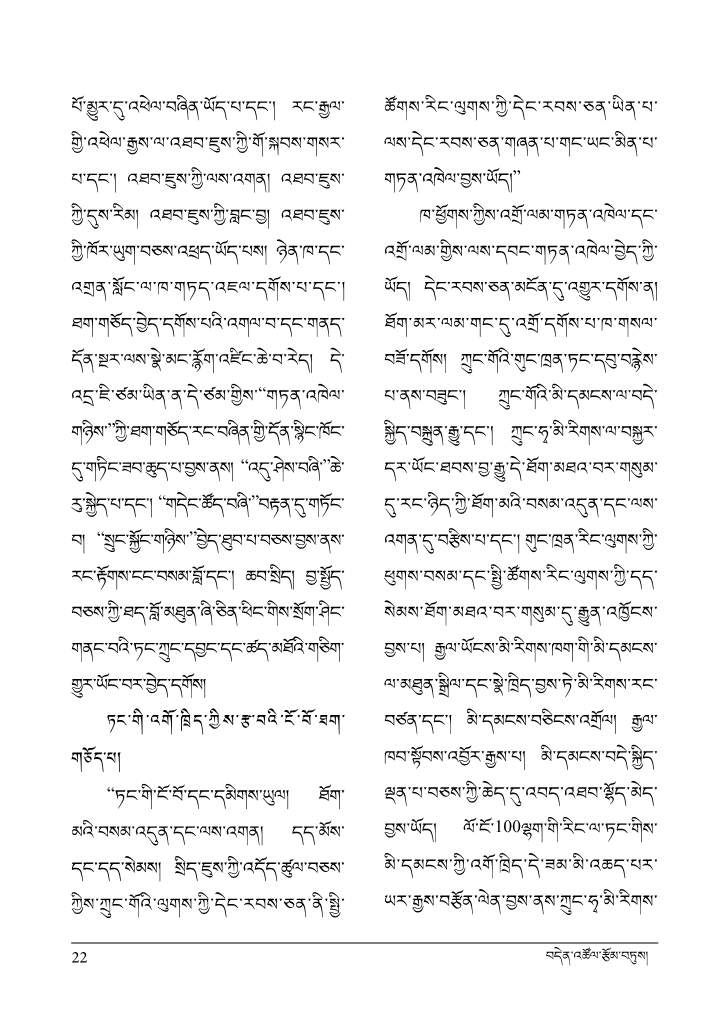 པོ་མྱུར་དུ་འཕེལ་བཞིན་ཡོད་པ་དང་། རང་རྒྱལ་
གྱི་འཕེལ་རྒྱས་ལ་འཐབ་ཇུས་ཀྱི་གོ་སྐབས་གསར་
པ་དང་། འཐབ་ཇུས་ཀྱི་ལས་འགན། འཐབ་ཇུས་
ཀྱི་དུས་རིམ། འཐབ་ཇུས་ཀྱི་བླང་བྱ། འཐབ་ཇུས་
ཀྱི་ཁོར་ཡུག་བཅས་འཕྲད་ཡོད་པས། ཉེན་ཁ་དང་
འགྲན་སློང་ལ་ཁ་གཏད་འཇལ་དགོས་པ་དང་།
ཐག་གཅོད་བྱེད་དགོས་པའི་འགལ་བ་དང་གནད་
དོན་སྔར་ལས་སྣེ་མང་རྙོག་འཛིང་ཆེ་བ་རེད། དེ་
འདྲ་ཇི་ཙམ་ཡིན་ན་དེ་ཙམ་གྱིས་“གཏན་འཁེལ་
གཉིས་”ཀྱི་ཐག་གཅོད་རང་བཞིན་གྱི་དོན་སྙིང་ཁོང་
དུ་གཏིང་ཟབ་ཆུད་པ་བྱས་ནས། “འདུ་ཤེས་བཞི་”ཆེ་
རུ་སྐྱེད་པ་དང་། “གདེང་ཚོད་བཞི་”བརྟན་དུ་གཏོང་
བ། “སྲུང་སྐྱོང་གཉིས་”བྱེད་ཐུབ་པ་བཅས་བྱས་ནས་
རང་རྟོགས་ངང་བསམ་བློ་དང་། ཆབ་སྲིད། བྱ་སྤྱོད་
བཅས་ཀྱི་ཐད་བློ་མཐུན་ཞི་ཅིན་ཕིང་གིས་སྲོག་ཤིང་
གནང་བའི་ཏང་ཀྲུང་དབྱང་དང་ཚད་མཐོའི་གཅིག་
གྱུར་ཡོང་བར་བྱེད་དགོས།
ཏང་གི་འགོ་ཁྲིད་ཀྱིས་རྩ་བའི་ངོ་བོ་ཐག་
གཅོད་པ།
“ཏང་གི་ངོ་བོ་དང་དམིགས་ཡུལ། ཐོག་
མའི་བསམ་འདུན་དང་ལས་འགན། དད་མོས་
དང་དད་སེམས། སྲིད་ཇུས་ཀྱི་འདོད་ཚུལ་བཅས་
ཀྱིས་ཀྲུང་གོའི་ལུགས་ཀྱི་དེང་རབས་ཅན་ནི་སྤྱི་
ཚོགས་རིང་ལུགས་ཀྱི་དེང་རབས་ཅན་ཡིན་པ་
ལས་དེང་རབས་ཅན་གཞན་པ་གང་ཡང་མིན་པ་
གཏན་འཁེལ་བྱས་ཡོད།”
ཁ་ཕྱོགས་ཀྱིས་འགྲོ་ལམ་གཏན་འཁེལ་དང་
འགྲོ་ལམ་གྱིས་ལས་དབང་གཏན་འཁེལ་བྱེད་ཀྱི་
ཡོད། དེང་རབས་ཅན་མངོན་དུ་འགྱུར་དགོས་ན།
ཐོག་མར་ལམ་གང་དུ་འགྲོ་དགོས་པ་ཁ་གསལ་
བཟོ་དགོས། ཀྲུང་གོའི་གུང་ཁྲན་ཏང་དབུ་བརྙེས་
པ་ནས་བཟུང་། ཀྲུང་གོའི་མི་དམངས་ལ་བདེ་
སྐྱིད་བསྐྲུན་རྒྱུ་དང་། ཀྲུང་ཧྭ་མི་རིགས་ལ་བསྐྱར་
དར་ཡོང་ཐབས་བྱ་རྒྱུ་དེ་ཐོག་མཐའ་བར་གསུམ་
དུ་རང་ཉིད་ཀྱི་ཐོག་མའི་བསམ་འདུན་དང་ལས་
འགན་དུ་བརྩིས་པ་དང་། གུང་ཁྲན་རིང་ལུགས་ཀྱི་
ཕུགས་བསམ་དང་སྤྱི་ཚོགས་རིང་ལུགས་ཀྱི་དད་
སེམས་ཐོག་མཐའ་བར་གསུམ་དུ་རྒྱུན་འཁྱོངས་
བྱས་པ། རྒྱལ་ཡོངས་མི་རིགས་ཁག་གི་མི་དམངས་
ལ་མཐུན་སྒྲིལ་དང་སྣེ་ཁྲིད་བྱས་ཏེ་མི་རིགས་རང་
བཙན་དང་། མི་དམངས་བཅིངས་འགྲོལ། རྒྱལ་
ཁབ་སྟོབས་འབྱོར་རྒྱས་པ། མི་དམངས་བདེ་སྐྱིད་
ལྡན་པ་བཅས་ཀྱི་ཆེད་དུ་འབད་འཐབ་ལྷོད་མེད་
བྱས་ཡོད། ལོ་ངོ་100ལྷག་གི་རིང་ལ་ཏང་གིས་
མི་དམངས་ཀྱི་འགོ་ཁྲིད་དེ་ཟམ་མི་འཆད་པར་
ཡར་རྒྱས་བརྩོན་ལེན་བྱས་ནས་ཀྲུང་ཧྭ་མི་རིགས་
22
བདེན་འཚོལ་རྩོམ་བཏུས།